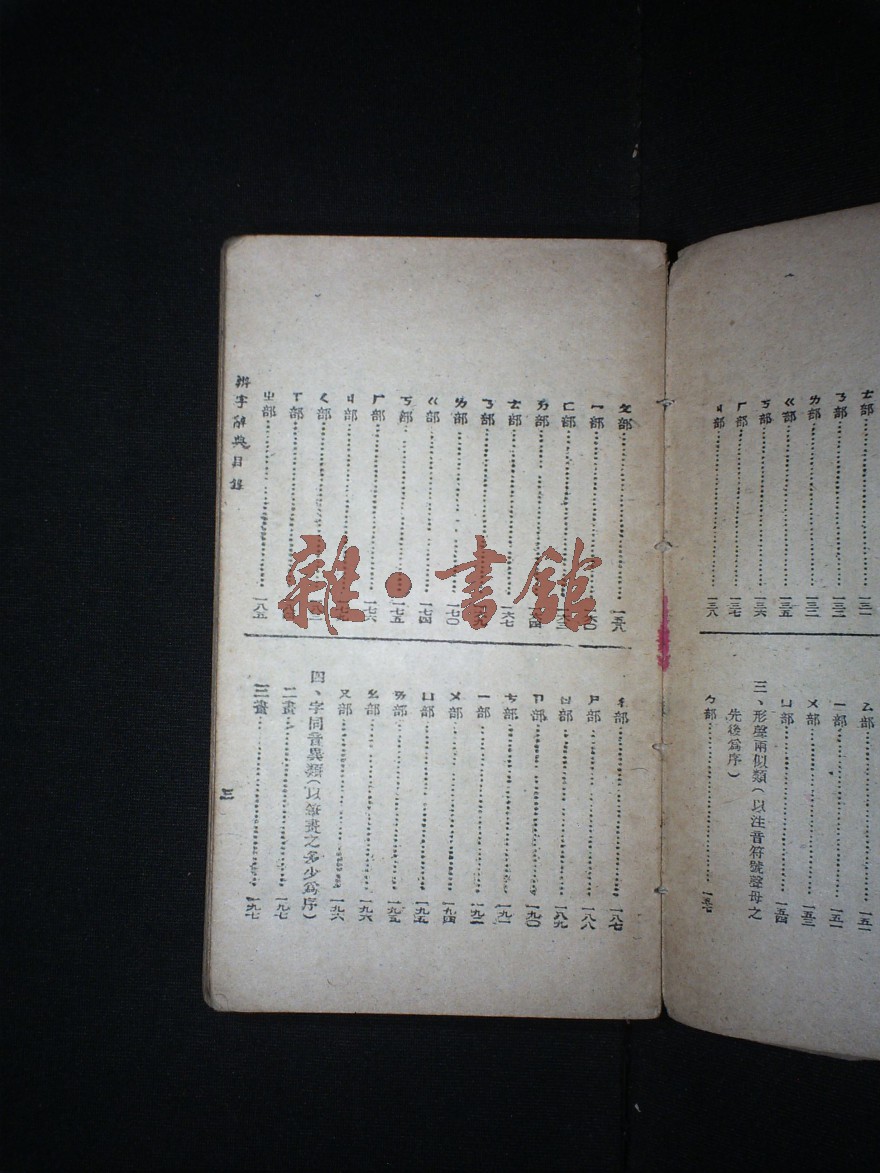 ㄊ部…………一三一
ㄋ部…………一三二
ㄌ部…………一三二
ㄍ部…………一三五
ㄎ部…………一三六
ㄏ部…………一三七
ㄐ部…………一三八
ㄙ部…………一五一
ㄧ部…………一五一
ㄨ部…………一五三
ㄩ部…………一五四
三、形聲兩似類(以注音符號聲母之
先後爲序)
ㄅ部…………一五七
ㄆ部…………一五八
ㄧ部…………一六〇
ㄈ部…………一六三
ㄉ部…………一六四
ㄊ部…………一六七
ㄋ部…………
ㄌ部…………一七〇
ㄍ部…………一七四
ㄎ部…………一七五
ㄏ部…………一七六
ㄐ部…………
ㄑ部…………
ㄒ部…………
ㄓ部…………一八五
ㄔ部…………一八七
ㄕ部…………一八八
ㄖ部…………一八九
ㄗ部…………一九〇
ㄘ部…………一九一
ㄧ部…………一九二
ㄨ部…………一九四
ㄩ部…………一九五
ㄞ部…………一九五
ㄠ部…………一九六
ㄡ部…………一九六
四、字同音異類(以筆畫之多少爲序)
二畫…………一九七
三畫…………一九七
辨字辭典目錄
三
雜·書館